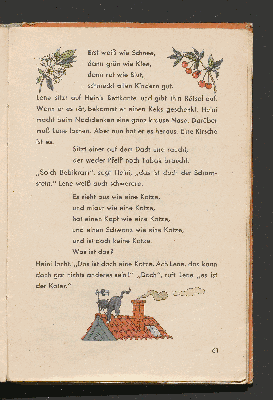 Erst weiß wie Schnee,
dann grün wie Klee,
dann rot wie Blut,
schmeckt allen Kindern gut.
Lene sitzt auf Heinis Bettkante und gibt ihm Rätsel auf.
Wenn er es rät, bekommt er einen Keks geschenkt. Heini
macht beim Nachdenken eine ganz krause Nase. Darüber
muß Lene lachen. Aber nun hat er es heraus. Eine Kirsche
ist es.
Sitzt einer auf dem Dach und raucht,
der weder Pfeif noch Tabak braucht.
sagt Heini, „das ist doch der Schorn-
stein." Lene weiß auch schwerere.
Es sieht aus wie eine Katze,
und miaut wie eine Katze,
hat einen Kopf wie eine Katze,
und einen Schwanz wie eine Katze,
und ist doch keine Katze.
Was ist das?
Heini lacht. „Das ist doch eine Katze. Ach Lene, das kann
doch gar nichts anderes sein!" „Doch", ruft Lene, „es ist
der Kater."